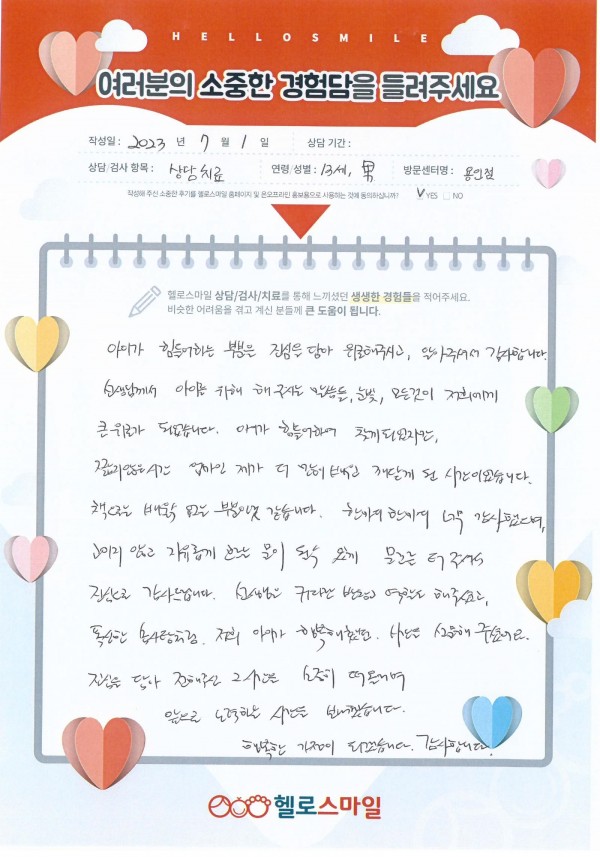 HELLOSMILE
여러분의 소중한 경험담을 들려주세요
작성일 : 2023 년 7 월 1 일 상담 기간 :
상담/검사 항목 : 상담치료 연령/성별 : 13세, 男 방문센터명 : 용인점
작성해 주신 소중한 후기를 헬로스마일 홈페이지 및 온오프라인 홍보용으로 사용하는 것에 동의하십니까? V YES □ NO
헬로스마일 상담/검사/치료를 통해 느끼셨던 생생한 경험들을 적어주세요.
비슷한 어려움을 겪고 계신 분들께 큰 도움이 됩니다.
아이가 힘들어하는 부분은 진심을 담아 위로해주시고, 알아주셔서 감사합니다.
선생님께서 아이를 위해 해주시는 말씀들, 눈빛, 모든것이 저희에게
큰 위로가 되었습니다. 아이가 힘들어하여 찾게되었지만,
시간 엄마인 제가 더 많이 배우고 깨닫게 된 시간이었습니다.
책으로는 배울 수 없는 부분이었던 것 같습니다. 한마디 한마디 너무 감사했으며,
않고 자유롭게 흐르는 물이 될수 있게 물꼬를 터 주셔서
진심으로 감사드립니다. 선생님은 커다란 역할도 해주셨고,
저희 아이가 행복해했던 시간을 선물해 주셨어요.
진심을 담아 전해주신 그 시간을 소중히 여기며
앞으로 노력하는 시간을 보내겠습니다.
행복한 가정이 되겠습니다. 감사합니다.
헬로스마일